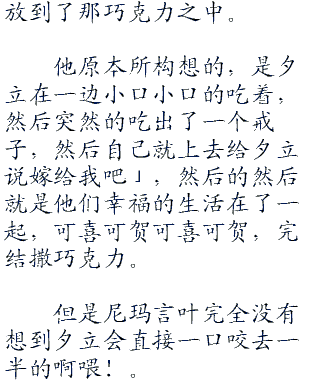 放到了那巧克力之中。
他原本所构想的，是夕
立在一边小口小口的吃着，
然后突然的吃出了一个戒
子，然后自己就上去给夕立
说嫁给我吧」，然后的然后
就是他们幸福的生活在了一
起，可喜可贺可喜可贺，完
结撒巧克力。
但是尼玛言叶完全没有
想到夕立会直接一口咬去一
半的啊喂！。